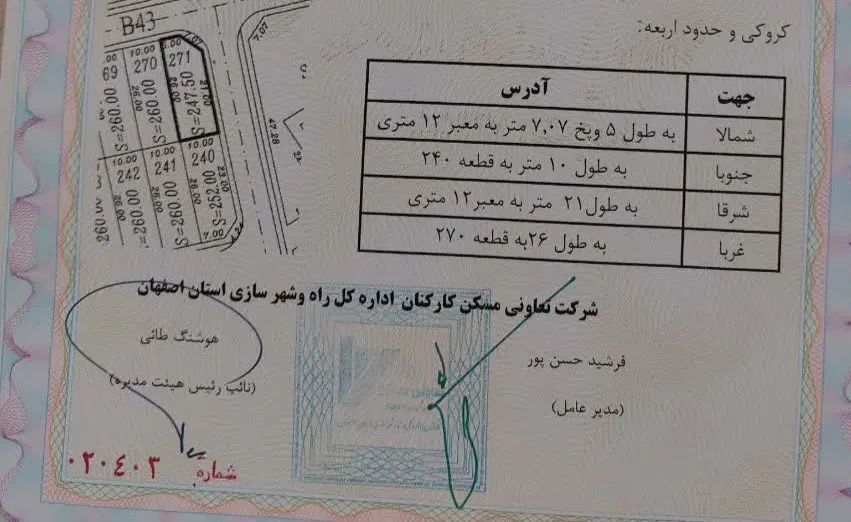 کروکی و حدود اربعه:
جهت آدرس
شمالا به طول ۵ وپخ ۷,۰۷ متر به معبر ۱۲ متری
جنوبا به طول ۱۰ متر به قطعه ۲۴۰
شرقا به طول۲۱ متر به معبر۱۲ متری
غربا به طول ۲۶به قطعه ۲۷۰
B43
7.07
7.07
69
10.00
270
5.00
271
S=260.00
26.00
S=260.00
26.00
S=247.50
21.00
47.28
10.00
242
10.00
241
10.00
240
260.00
26.00
S=260.00
26.00
S=260.00
S=252.00
7.00
شرکت تعاونی مسکن کارکنان اداره کل راه وشهر سازی استان اصفهان
هوشنگ طائی
(نائب رئیس هیئت مدیره)
فرشید حسن پور
(مدیر عامل)
شماره ۰۲۰۴۰۳